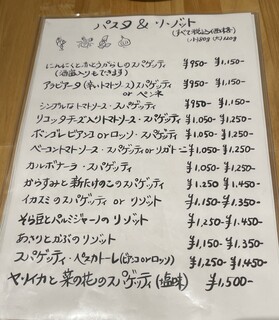 パスタ & リゾット
(すべて税込み価格)
(小)80g (大)120g
にんにくと赤とうがらしのスパゲッティ ¥950- ¥1,150-
(酒盗入りもできます)
アラビアータ(辛いトマトソース)スパゲッティ ¥950- ¥1,150-
or ペンネ
シンプルなトマトソース・スパゲッティ ¥950- ¥1,150-
リコッタチーズ入りトマトソース・スパゲッティ ¥1,050- ¥1,250-
ボンゴレビアンコ or ロッソ・スパゲッティ ¥1,050- ¥1,250-
ベーコントマトソース・スパゲッティ or リガトーニ ¥1,050- ¥1,250-
カルボナーラ・スパゲッティ ¥1,050- ¥1,250-
からすみと新たけのこのスパゲッティ ¥1,250 ¥1,450-
イカスミのスパゲッティ or リゾット ¥1,150- ¥1,350-
そら豆とパルミジャーノのリゾット ¥1,250- ¥1,450-
あさりとかぶのリゾット ¥1,150- ¥1,350-
スパゲッティ・ペスカトーレ(ビアンコ or ロッソ) ¥1,250- ¥1,450-
ヤリイカと菜の花のスパゲッティ(塩味) ¥1,500-